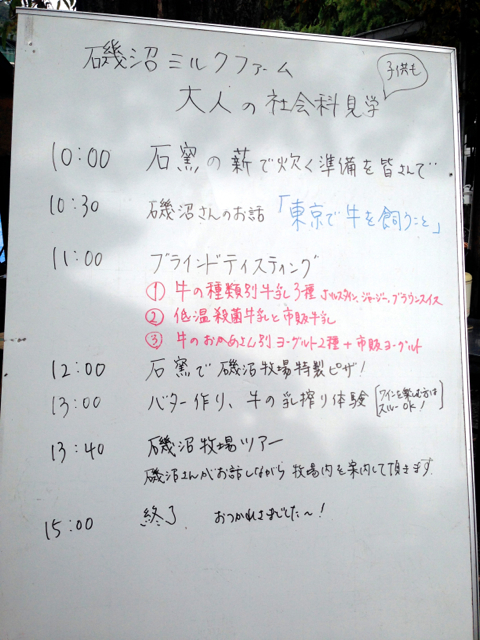 磯沼ミルクファーム
子供も
大人の社会科見学
10:00 石窯の薪で炊く準備を皆さんで‥
10:30 磯沼さんのお話「東京で牛を飼うこと」
11:00 ブラインドテイスティング
① 牛の種類別牛乳3種 ホルスタイン、ジャージー、ブラウンスイス
② 低温殺菌牛乳と市販牛乳
③ 牛のおかあさん別ヨーグルト2種+市販ヨーグルト
12:00 石窯で磯沼牧場特製ピザ!
13:00 バター作り、牛の乳搾り体験 [ワインを楽しむ方は
スルーOK!]
13:40 磯沼牧場ツアー
磯沼さんがお話しながら牧場内を案内して頂きます
15:00 終了 おつかれさまでした〜!